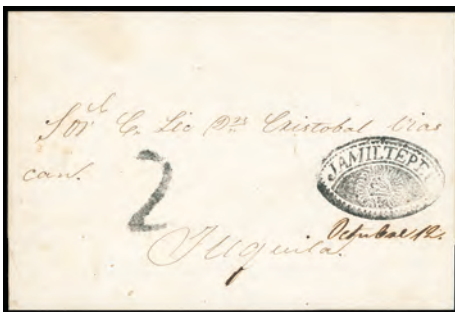 Sor. C. Lic Dn. Cristobal
can.
JAMILTEPEC
2
Octubre 12.
Juquila.